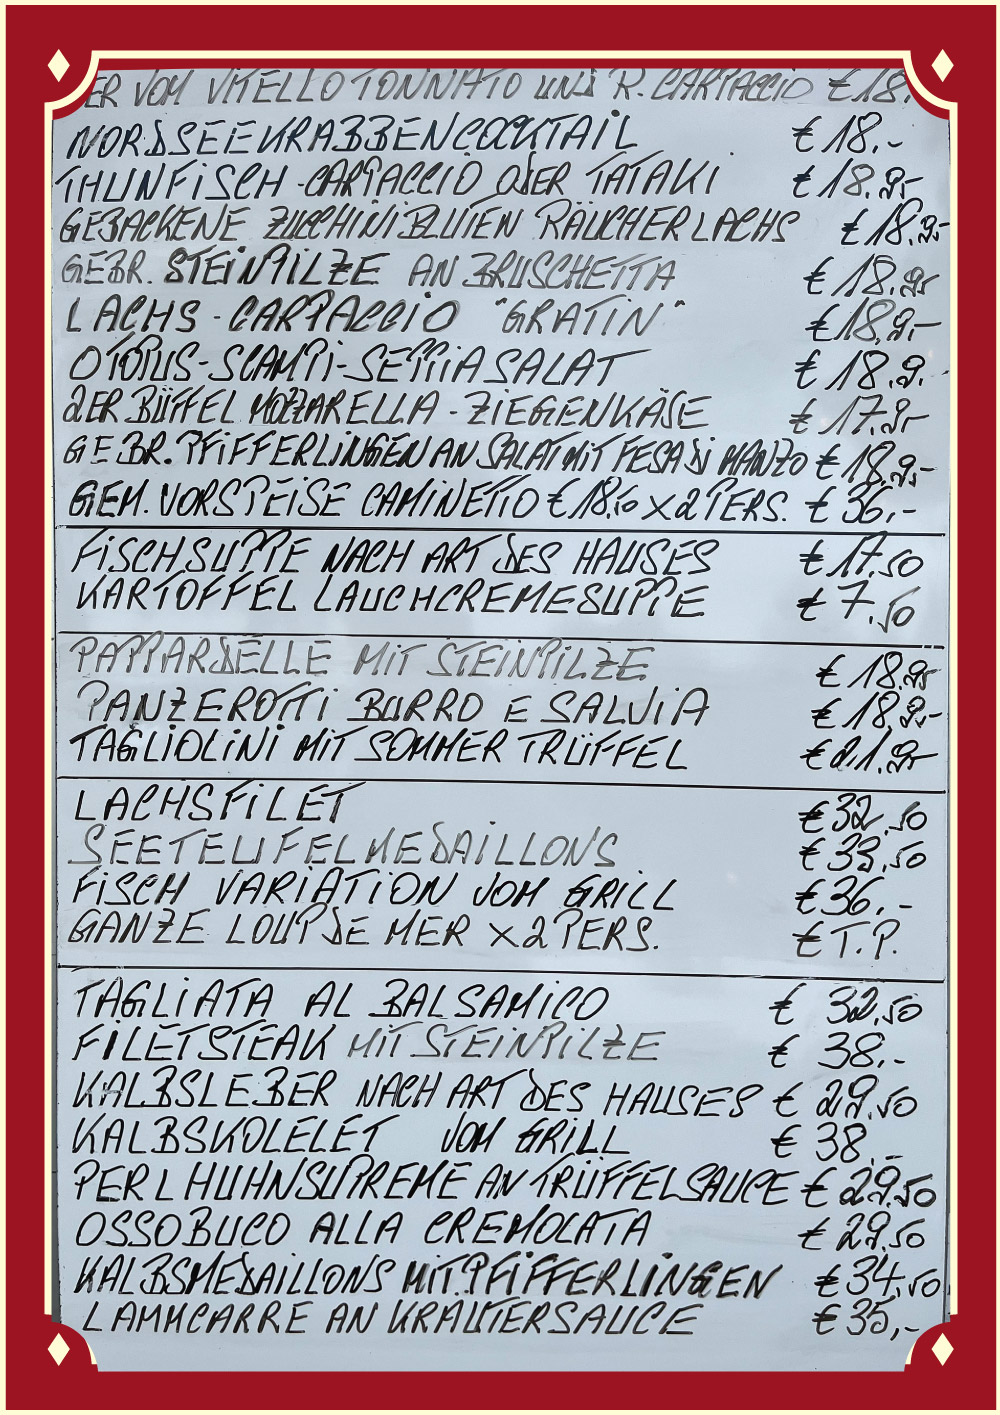 ER VOM VITELLO TONNATO UND R. CARPACCIO €18.
NORDSEEKRABBENCOCKTAIL €18.-
THUNFISCH-CARPACCIO ODER TATAKI €18.95
GEBACKENE ZUCCHINIBLUTEN RÄUCHERLACHS €18.9.-
GEBR. STEINPILZE AN BRUSCHETTA €18.95
LACHS-CARPACCIO "GRATIN" €18.9.-
OTOPUS-SCAMPI-SEPPIASALAT €18.9.
2ER BÜFFEL MOZZARELLA-ZIEGENKÄSE €17.95
GEBR. PFIFFERLINGEN AN SALAT MIT FESA DI MANZO €18.9.-
GEM. VORSPEISE CAMINETTO €18,00 X 2 PERS. €36,-
FISCHSUPPE NACH ART DES HAUSES €17.50
KARTOFFEL LAUCHCREMESUPPE €7.50
PAPPARDELLE MIT STEINPILZE €18.95
PANZEROTTI BURRO E SALVIA €18.9.-
TAGLIOLINI MIT SOMMER TRÜFFEL €21.95
LACHSFILET €32.50
SEETEUFELMEDAILLONS €33.50
FISCH VARIATION VOM GRILL €36.-
GANZE LOUP DE MER X 2 PERS. €T.P.
TAGLIATA AL BALSAMICO € 32.50
FILETSTEAK MIT STEINPILZE € 38.-
KALBSLEBER NACH ART DES HAUSES € 29.50
KALBSKOLELET VOM GRILL € 38.-
PERLHUHNSUPREME AN TRÜFFELSAUCE € 29.50
OSSOBUCO ALLA CREMOLATA €29.50
KALBSMEDAILLONS MIT PFIFFERLINGEN €34.50
LAMMCARRE AN KRAUTERSAUCE €35,-